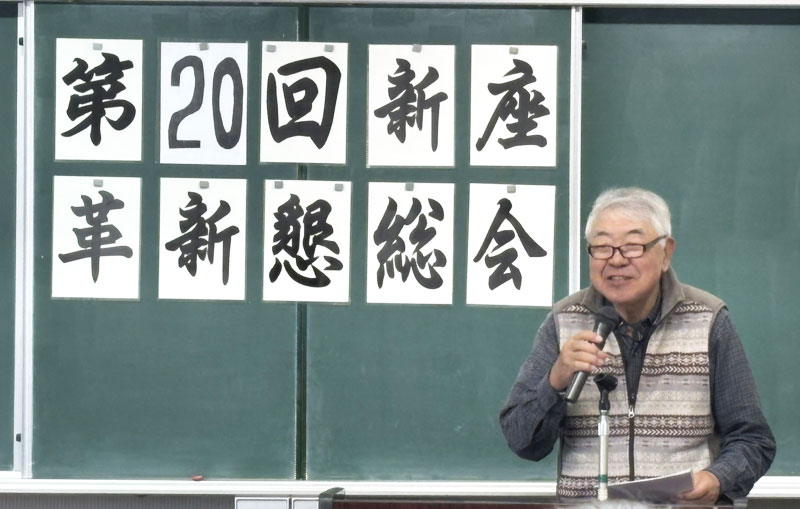 第20回新座
革新懇総会